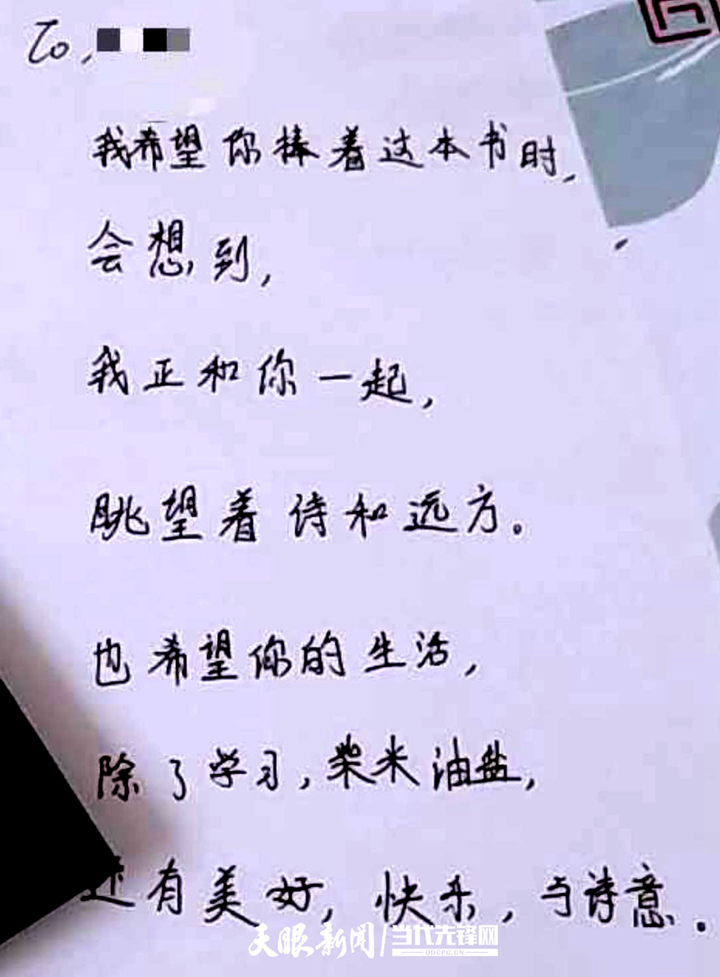 To,
我希望你捧着这本书时,
会想到,
我正和你一起,
眺望着诗和远方。
也希望你的生活,
除了学习,柴米油盐,
还有美好,快乐,与诗意.
天眼新闻 当代先锋网
DDCPC.CN